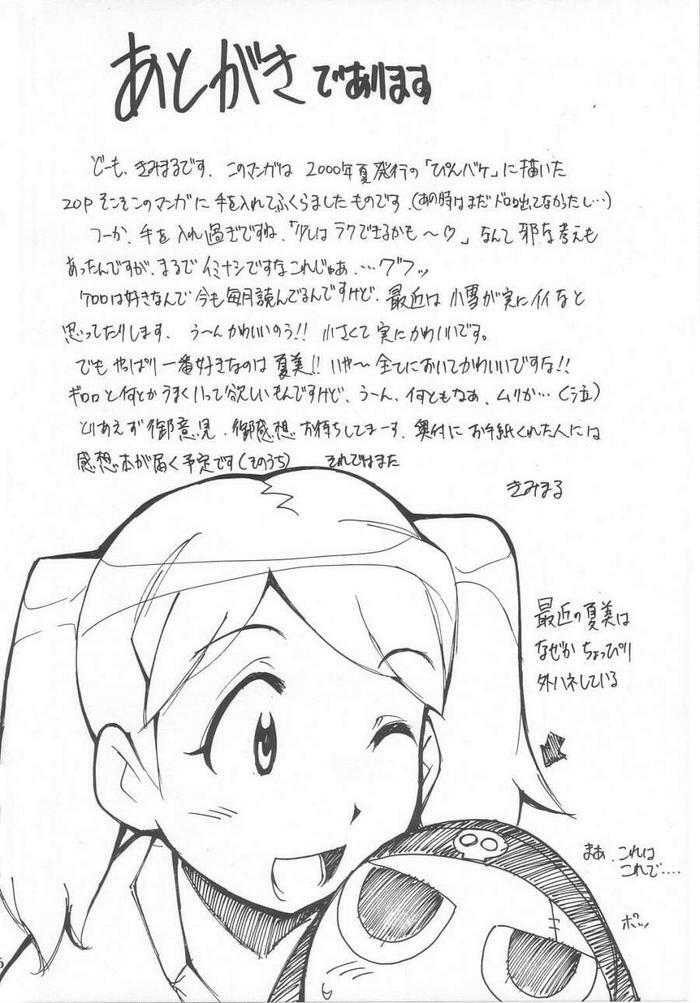 あとがきであります
どーも、きみまるです。このマンガは 2000年夏発行の「ぴんバケ」に描いた
20Pそこそこのマンガに手を入れてふくらましたものです。(あの時はまだドロロ出てなかったし…)
つーか、手を入れ過ぎですね、「少しはラクできるかも〜♡」なんて邪な考えも
あったんですが、まるでイミナシですなこれじゃあ、…グフッ
ケロロは好きなんで今も毎月読んでるんですけど、最近は小雪が実にイイなと
思ってたりします、う〜んかわいいのう!! 小さくて実にかわいいです。
でもやっぱり一番好きなのは夏美!! いや〜全てにおいてかわいいですな!!
ギロロと何とかうまくいって欲しいもんですけど、う〜ん、何ともなあ、ムリか…(泣)
とりあえず御意見、御感想お待ちしてまーす、奥付にお手紙くれた人には
感想本が届く予定です(そのうち) それではまた
きみまる
最近の夏美は
なぜかちょっぴり
外ハネしている
まあ、これは
これで‥‥
ポッ